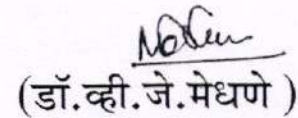 (डॉ.व्ही.जे.मेधणे )